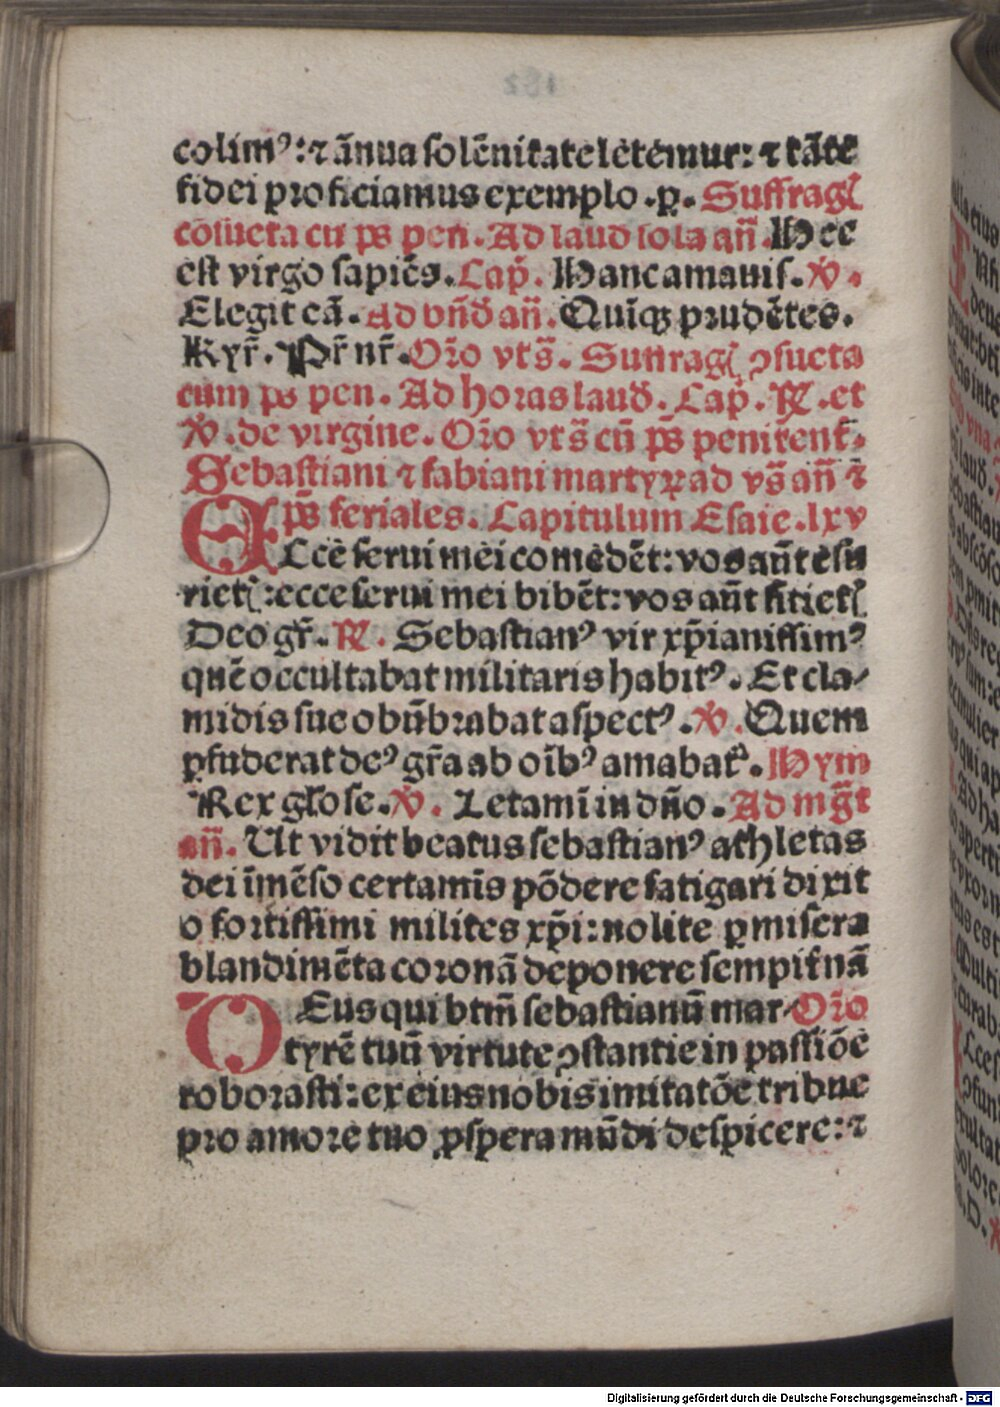 colimꝰ: ⁊ ānua ſolēnitate letemur: ⁊ tāte
fidei proficiamus exemplo .p̱. Suffragꝭ
cōſueta cū ps̄ pen. Ad laud ſola an̄. Hec
eſt virgo ſapiēs. Cap̄. Hanc amaui ſ. ꝟ.
Elegit eā. Ad vn̄d an̄. Quīqꝫ prudētes.
Kyr̄. Pr̄ nr̄. Or̄o vts̄. Suffragꝭ ꝯſueta
cum ps̄ pen. Ad horas laud. Cap̄. ꝶ. et
ꝟ. de virgine. Or̄o vts̄ cū ps̄ penitent̄.
Sebaſtiani ⁊ fabiani martyꝝ ad vs̄ an̄ ⁊
ps̄ feriales. Capitulum Eſaie .lxv
ECce ſerui mei comedēt: vos aūt eſu
rietꝭ: ecce ſerui mei bibēt: vos aūt ſitietꝭ
Deo gr̄. ꝶ. Sebaſtianꝰ vir xp̄ianiſſimꝰ
quē occultabat militaris habitꝰ. Et cla⸗
midis ſue obūbrabat aſpectꝰ. ꝟ. Quem
ꝑfuderat deꝰ gr̄a ab oībꝰ amabat᷑. Hym
Rex gl̄oſe. ꝟ. Letamī in dn̄o. Ad mḡt
an̄. Ut vidit beatus ſebaſtianꝰ athletas
dei īmēſo certamīs pōdere fatigari dixit
o fortiſſimi milites xp̄i: nolite ꝑ miſera
blandimēta coronā deponere ſempit̄nā
DEus qui btm̄ ſebaſtianū mar⸗ Or̄o
tyrē tuū virtute ꝯſtantie in paſſiōe
roboraſti: ex eius nobis imitatōe tribue
pro amore tuo ꝓſpera mūdi deſpicere: ⁊
Digitalisierung gefördert durch die Deutsche Forschungsgemeinschaft - DFG